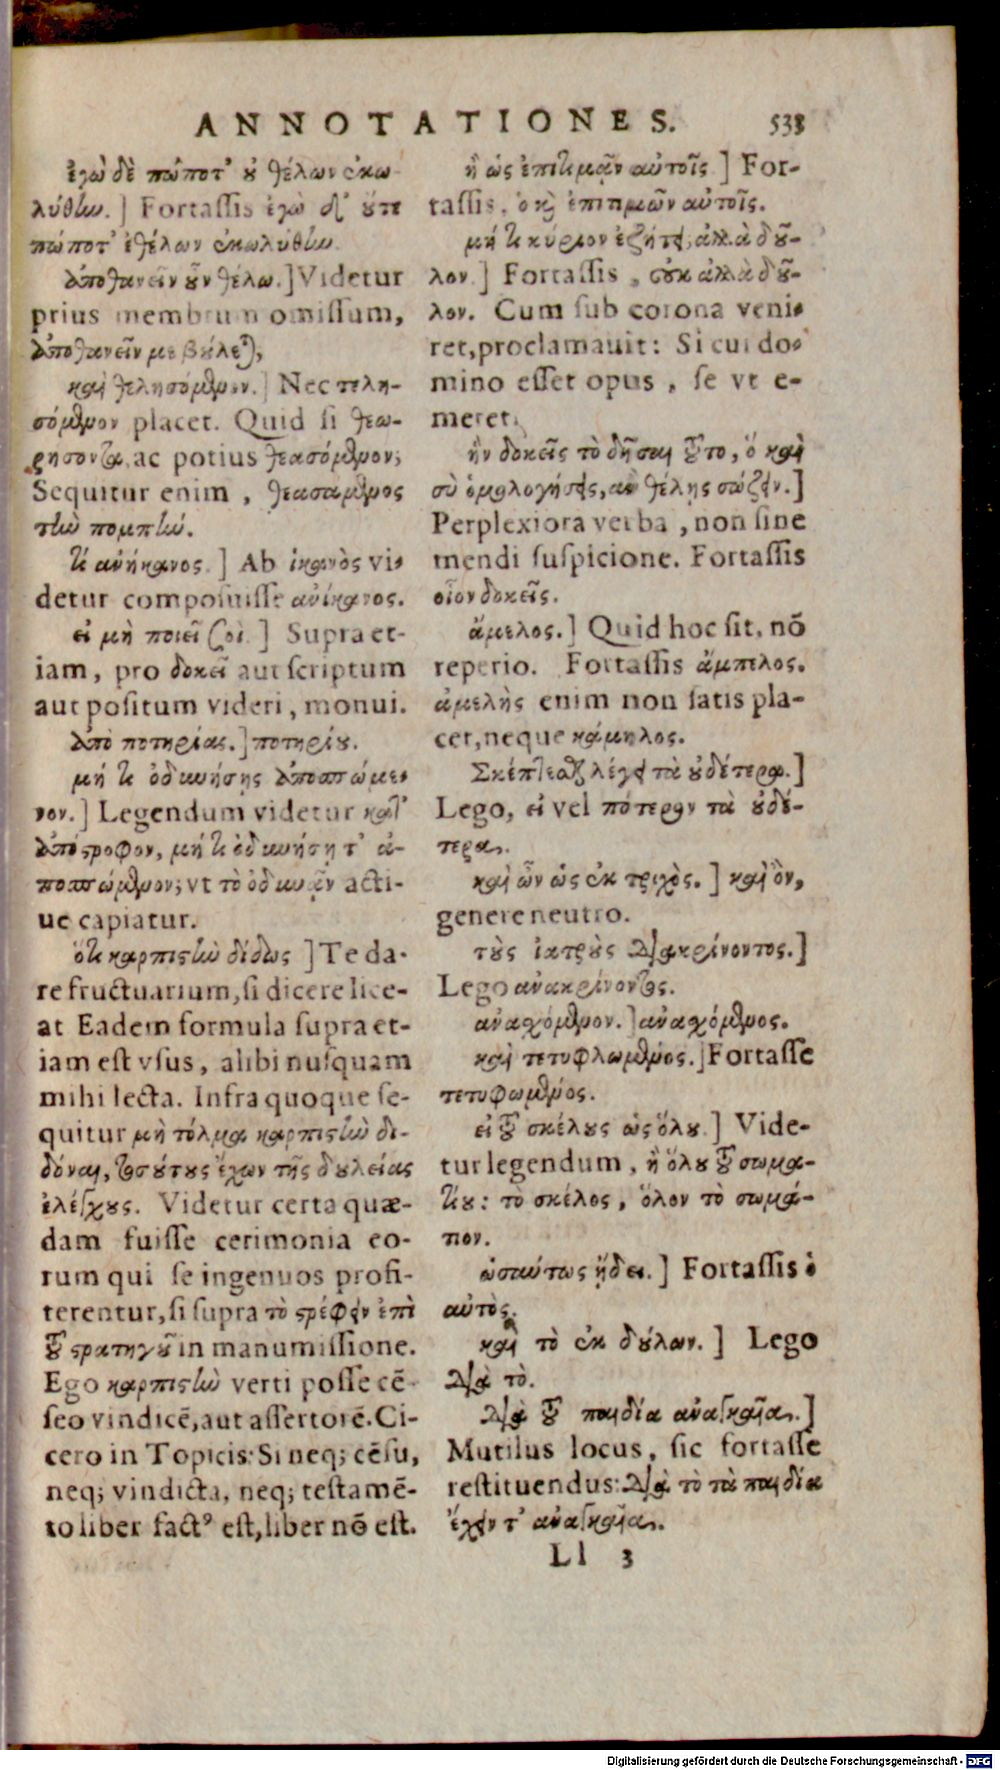 ANNOTATIONES. 533
ἐγὼ δὲ πώποτ' οὐ θέλων ἐκω-
λύθην.] Fortassis ἐγὼ δ' οὔτε
πώποτ' ἐθέλων ἐκωλύθην.
ἀποθανεῖν οὖν θέλω.] Videtur
prius membrum omissum,
ἀποθανεῖν με βούλεται,
καὶ θελησόμενον.] Nec τελη-
σόμενον placet. Quid si θεω-
ρήσοντα, ac potius θεασόμενον;
Sequitur enim, θεασάμενος
τὴν πομπήν.
τί ἀνήκανος.] Ab ἱκανὸς vi-
detur composuisse ἀνίκανος.
εἰ μὴ ποιεῖ σοὶ.] Supra et-
iam, pro δοκεῖ aut scriptum
aut positum videri, monui.
ἀπὸ ποτηρίας.] ποτηρίου.
μή τι ὀδυνήσῃς ἀποσπώμε-
νον.] Legendum videtur κατ'
ἀπόστροφον, μή τι ὀδυνήσῃ τ' ἀ-
ποσπώμενον; vt τὸ ὀδυνᾷν acti-
ue capiatur.
ὅτι καρπιστὴν δίδως] Te da-
re fructuarium, si dicere lice-
at Eadem formula supra et-
iam est vsus, alibi nusquam
mihi lecta. Infra quoque se-
quitur μὴ τόλμα καρπιστὴν δι-
δόναι, τοσούτους ἔχων τῆς δουλείας
ἐλέγχους. Videtur certa quæ-
dam fuisse cerimonia eo-
rum qui se ingenuos profi-
terentur, si supra τὸ στρέφειν ἐπὶ
τοῦ στρατηγοῦ in manumissione.
Ego καρπιστὴν verti posse cē-
seo vindicē, aut assertorē. Ci-
cero in Topicis: Si neq; cēsu,
neq; vindicta, neq; testamē-
to liber factꝰ est, liber nō est.
ἢ ὡς ἐπιτιμᾷν αὐτοῖς.] For-
tassis, ὁ καὶ ἐπιτιμῶν αὐτοῖς.
μή τι κύριον ἐζήτει, ἀλλὰ δοῦ-
λον.] Fortassis, οὐκ ἀλλὰ δοῦ-
λον. Cum sub corona veni-
ret, proclamauit: Si cui do-
mino esset opus, se vt e-
meret.
ἣν δοκεῖς τὸ δῆσαι τοῦτο, ὅ καὶ
σὺ ὁμολογήσεις, ἂν θέλῃς σώζειν.]
Perplexiora verba, non sine
mendi suspicione. Fortassis
οἷον δοκεῖς.
ἄμελος.] Quid hoc sit, nō
reperio. Fortassis ἄμπελος.
ἀμελὴς enim non satis pla-
cet, neque κάμηλος.
Σκέπτεσθαι λέγει τὰ οὐδέτερα.]
Lego, εἰ vel πότερον τὰ οὐδέ-
τερα.
καὶ ὢν ὡς ἐκ τριχὸς.] καὶ ὂν,
genere neutro.
τοὺς ἰατροὺς διακρίνοντος.]
Lego ἀνακρίνοντος.
ἀναχόμενον.] ἀναχόμενος.
καὶ τετυφλωμένος.] Fortasse
τετυφωμένος.
εἰ τοῦ σκέλους ὡς ὅλου.] Vide-
tur legendum, ἢ ὅλου τοῦ σωμα-
τίου: τὸ σκέλος, ὅλον τὸ σωμά-
τιον.
ὡσαύτως ᾔδει.] Fortassis ὁ
αὐτὸς.
καὶ τὸ ἐκ δούλων.] Lego
διὰ τὸ.
διὰ τοῦ παιδία ἀναγκαῖα.]
Mutilus locus, sic fortasse
restituendus: διὰ τὸ τὰ παιδία
ἔχειν τ' ἀναγκαῖα.
Ll 3
Digitalisierung gefördert durch die Deutsche Forschungsgemeinschaft - DFG